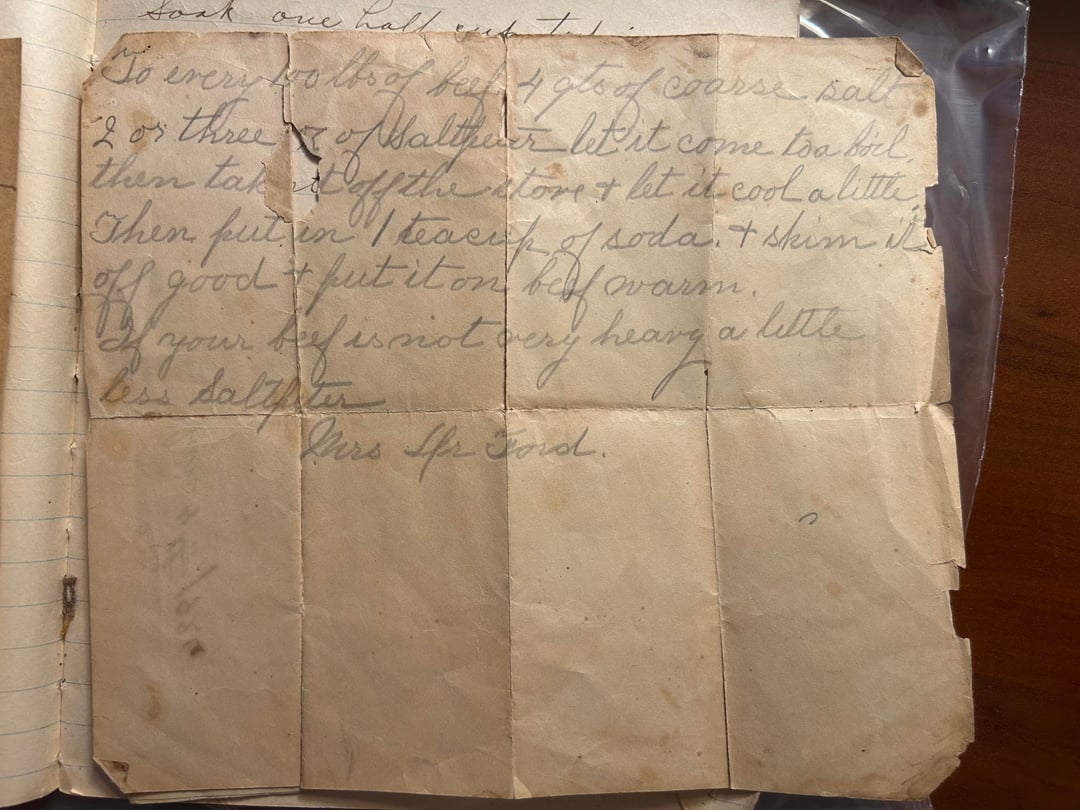 Soak one half
To every 100 lbs of beef 4 qts of coarse salt
2 or three of Saltpeter let it come to a boil.
then take it off the stove + let it cool a little.
Then put in 1 teacup of soda. + skim it
off good + put it on beef warm.
If your beef is not very heavy a little
less Saltpeter
Mrs Ford.